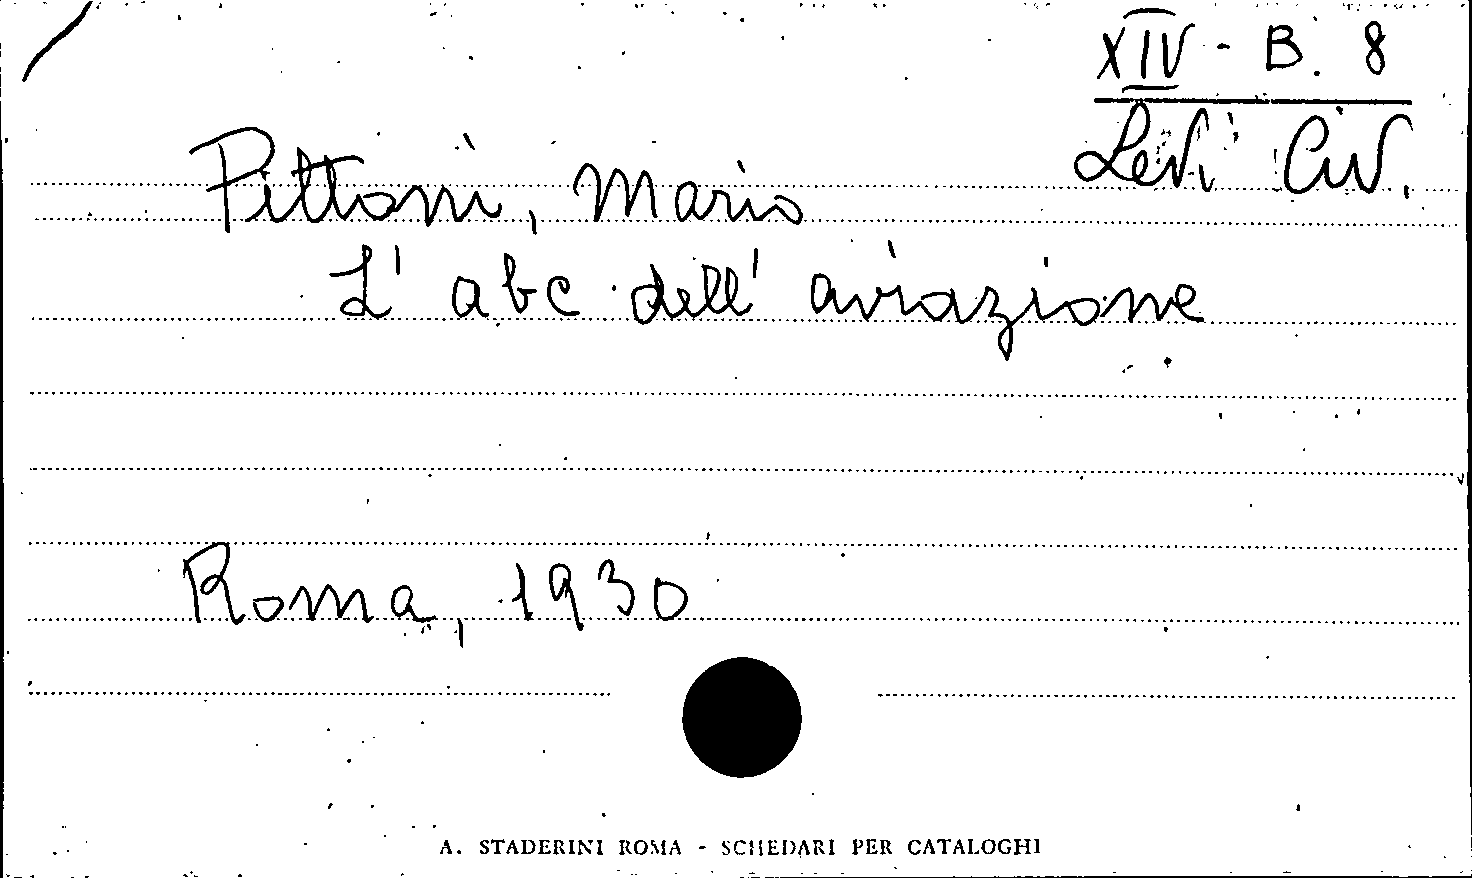 XIV - B. 8
Levi Civ.
Pittoni, Mario
L' abc dell' aviazione
Roma, 1930
A. STADERINI ROMA - SCHEDARI PER CATALOGHI